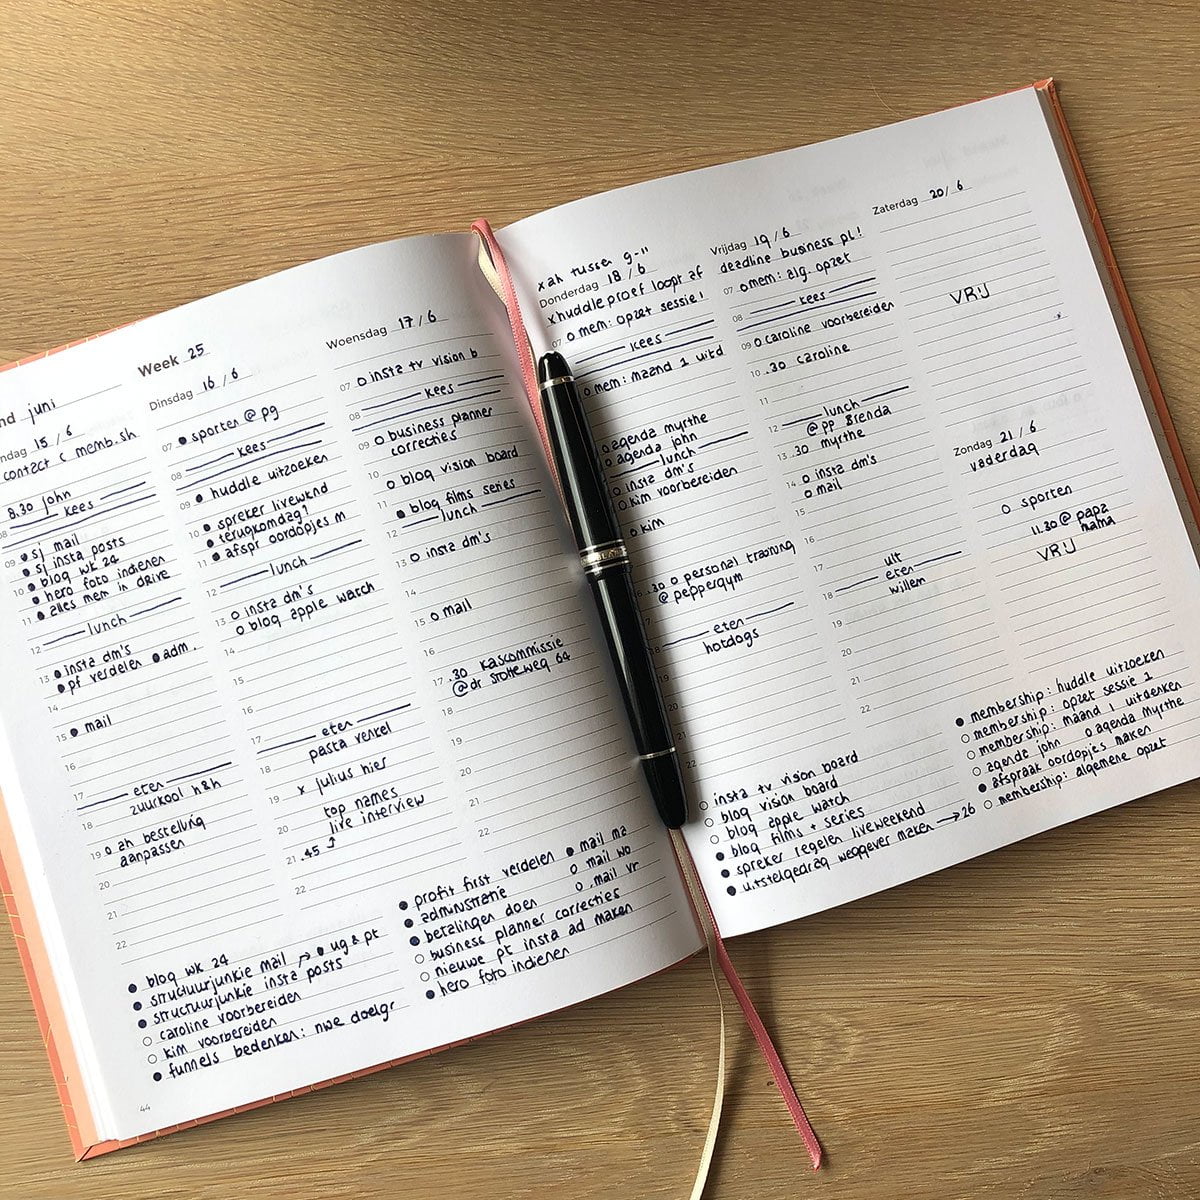 nd juni
Week 25
ndag 15/6
contact c memb.sh
8.30 john
kees
08
09 sj mail
sj insta posts
10 blog wk 24
hero foto indienen
11 alles mem in drive
lunch
12
13 insta dm's
pf verdelen adm.
14
15 mail
16
17 eten
zuurkool h&h
18
19 o ah bestelling
aanpassen
20
21
22
Dinsdag 16/6
07 sporten @ pg
08 kees
09 huddle uitzoeken
10 spreker livewknd
terugkomdag?
11 afspr oordopjes m
12 lunch
13 o insta dm's
o blog apple watch
14
15
16
17 eten
pasta venkel
18
19 x julius hier
20 top names
live interview
21 .45
22
Woensdag 17/6
07 o insta tv vision b
08 kees
09 o business planner
correcties
10 o blog vision board
11 blog films series
lunch
12
13 o insta dm's
14
15 o mail
16
17 .30 kascommissie
@dr
64
18
19
20
21
22
x ah tussen 9-11
Donderdag 18/6
x huddle proef loopt af
07 o mem: opzet sessie 1
kees
o mem: maand 1 uitd
o agenda myrthe
o agenda john
lunch
o insta dm's
o kim voorbereiden
o kim
.30 o personal training
@ peppergym
eten
hotdogs
19
20
21
22
Vrijdag 19/6
deadline business pl!
07 o mem: alg. opzet
08 kees
09 o caroline voorbereiden
10 .30 caroline
11
12 lunch
@ pp Brenda
13 .30 myrthe
14 o insta dm's
o mail
15
16
17 uit
eten
18 willem
19
20
21
22
Zaterdag 20/6
VRIJ
Zondag 21/6
vaderdag
o sporten
11.30 @ papa
mama
VRIJ
blog wk 24
structuurjunkie mail → ug & pt
structuurjunkie insta posts
caroline voorbereiden
kim voorbereiden
funnels bedenken: nwe doelgr
profit first verdelen mail ma
administratie o mail wo
betalingen doen o mail vr
business planner correcties
nieuwe pt insta ad maken
hero foto indienen
insta tv vision board
blog vision board
blog apple watch
blog films + series
spreker regelen liveweekend
uitstelgedrag weggever maken → 26
membership: huddle uitzoeken
membership: opzet sessie 1
membership: maand 1 uitdenken
agenda john o agenda myrthe
afspraak oordopjes maken
membership: algemene opzet
44